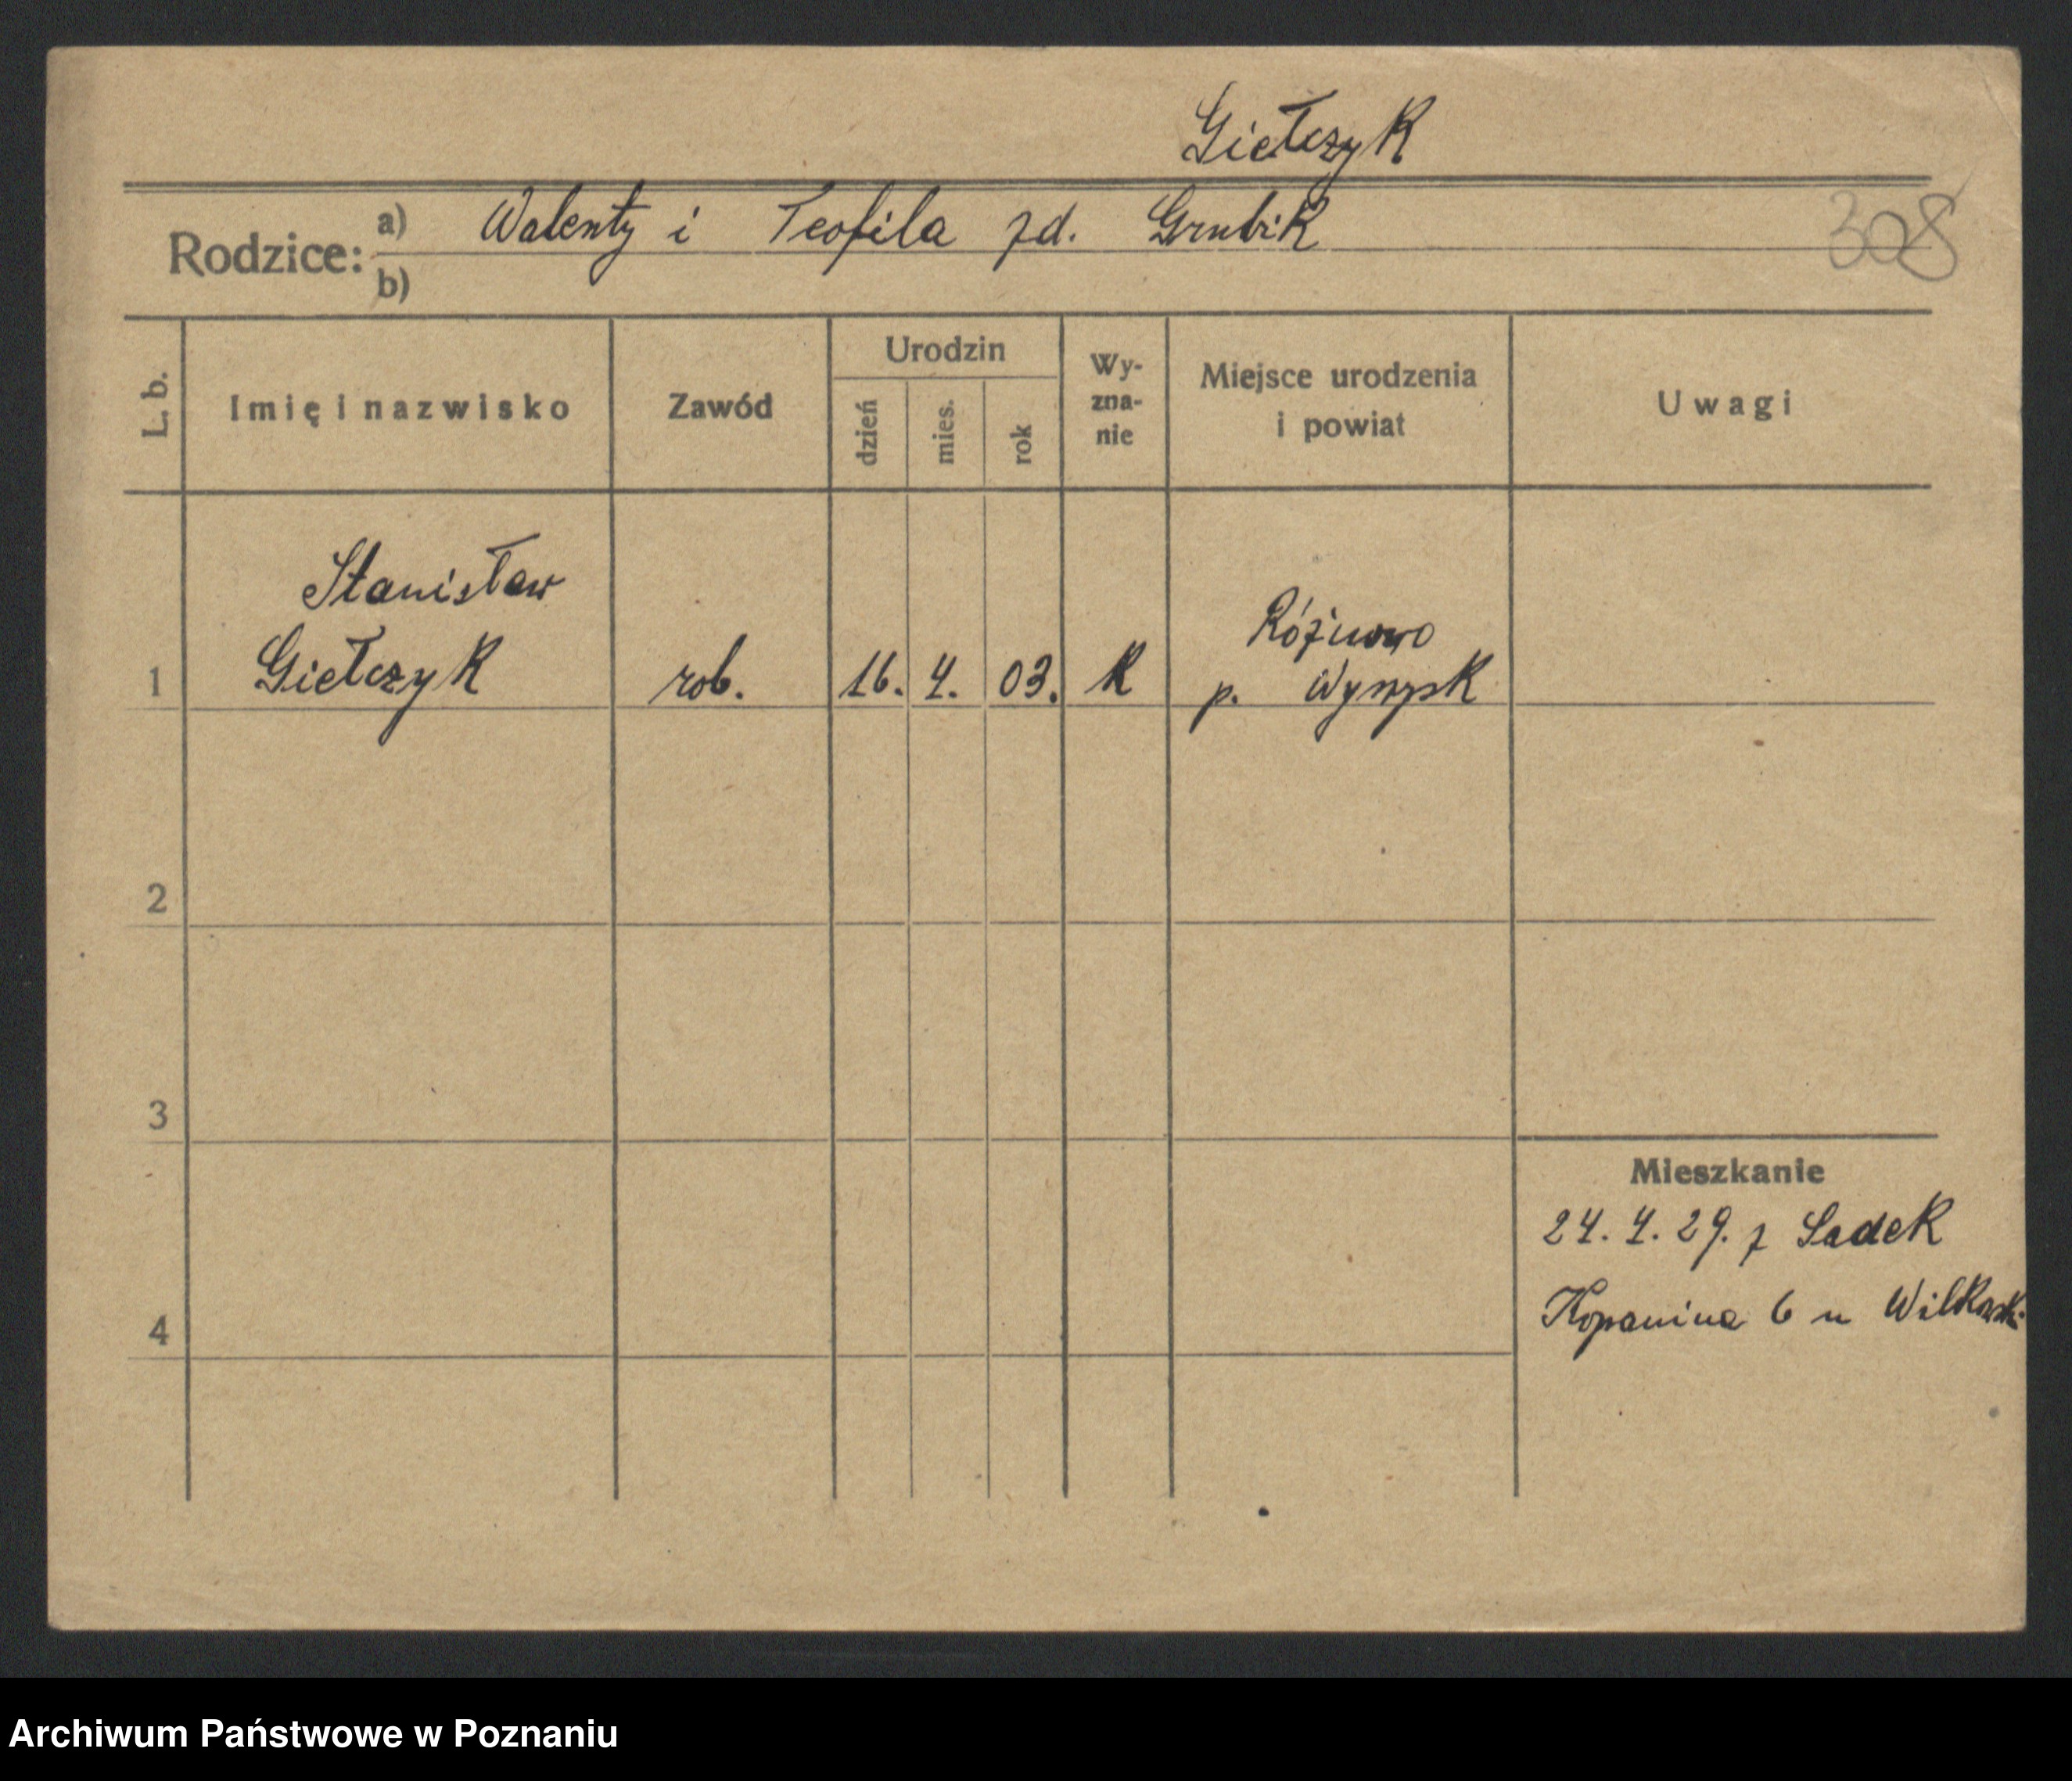 Giełczyk
Rodzice: a) Walenty i Teofila zd. Grubik
308
b)
L. b. Imię i nazwisko Zawód Urodzin dzień mies. rok Wy-zna-nie Miejsce urodzenia i powiat Uwagi
Stanisław
Różnowo
1 Giełczyk rob. 16. 4. 03. K p. Wyrzysk
2
3
Mieszkanie
24. 4. 29. z Sadek
4 Kopanina 6 u
Archiwum Państwowe w Poznaniu